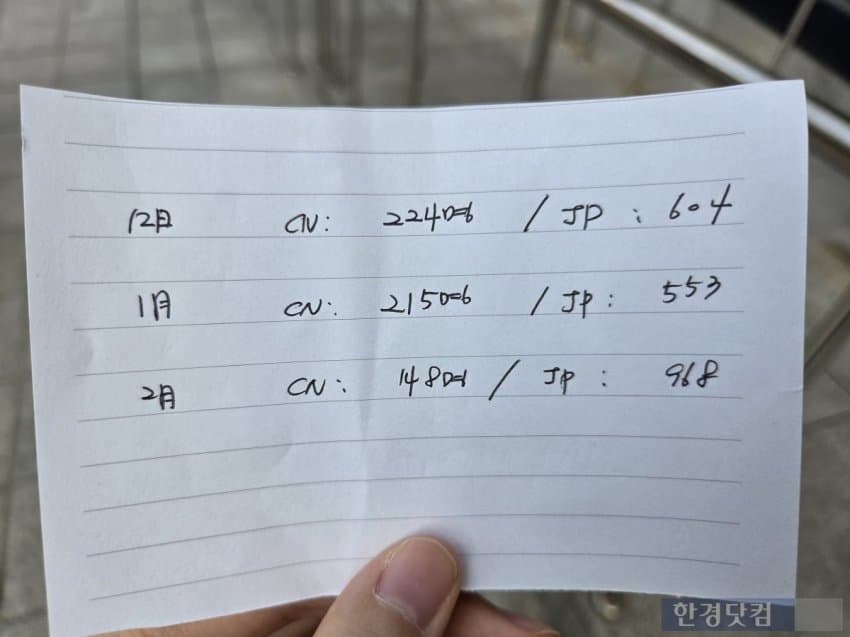 12月 CN: 224명 / JP : 604
1月 CN: 215명 / JP: 553
2月 CN: 148명 / JP : 968
한경닷컴